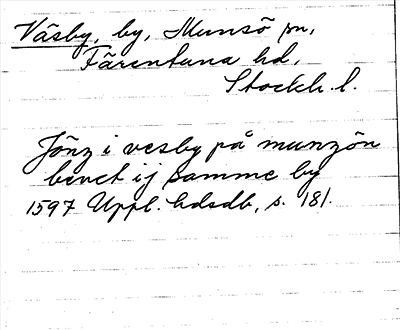 Väsby, by, Munsö sn,
Färentuna hd,
Stockh. l.
Jönz i vesby på munzön
benet ij samme by
1597 Uppl. hdsdb, s. 181.